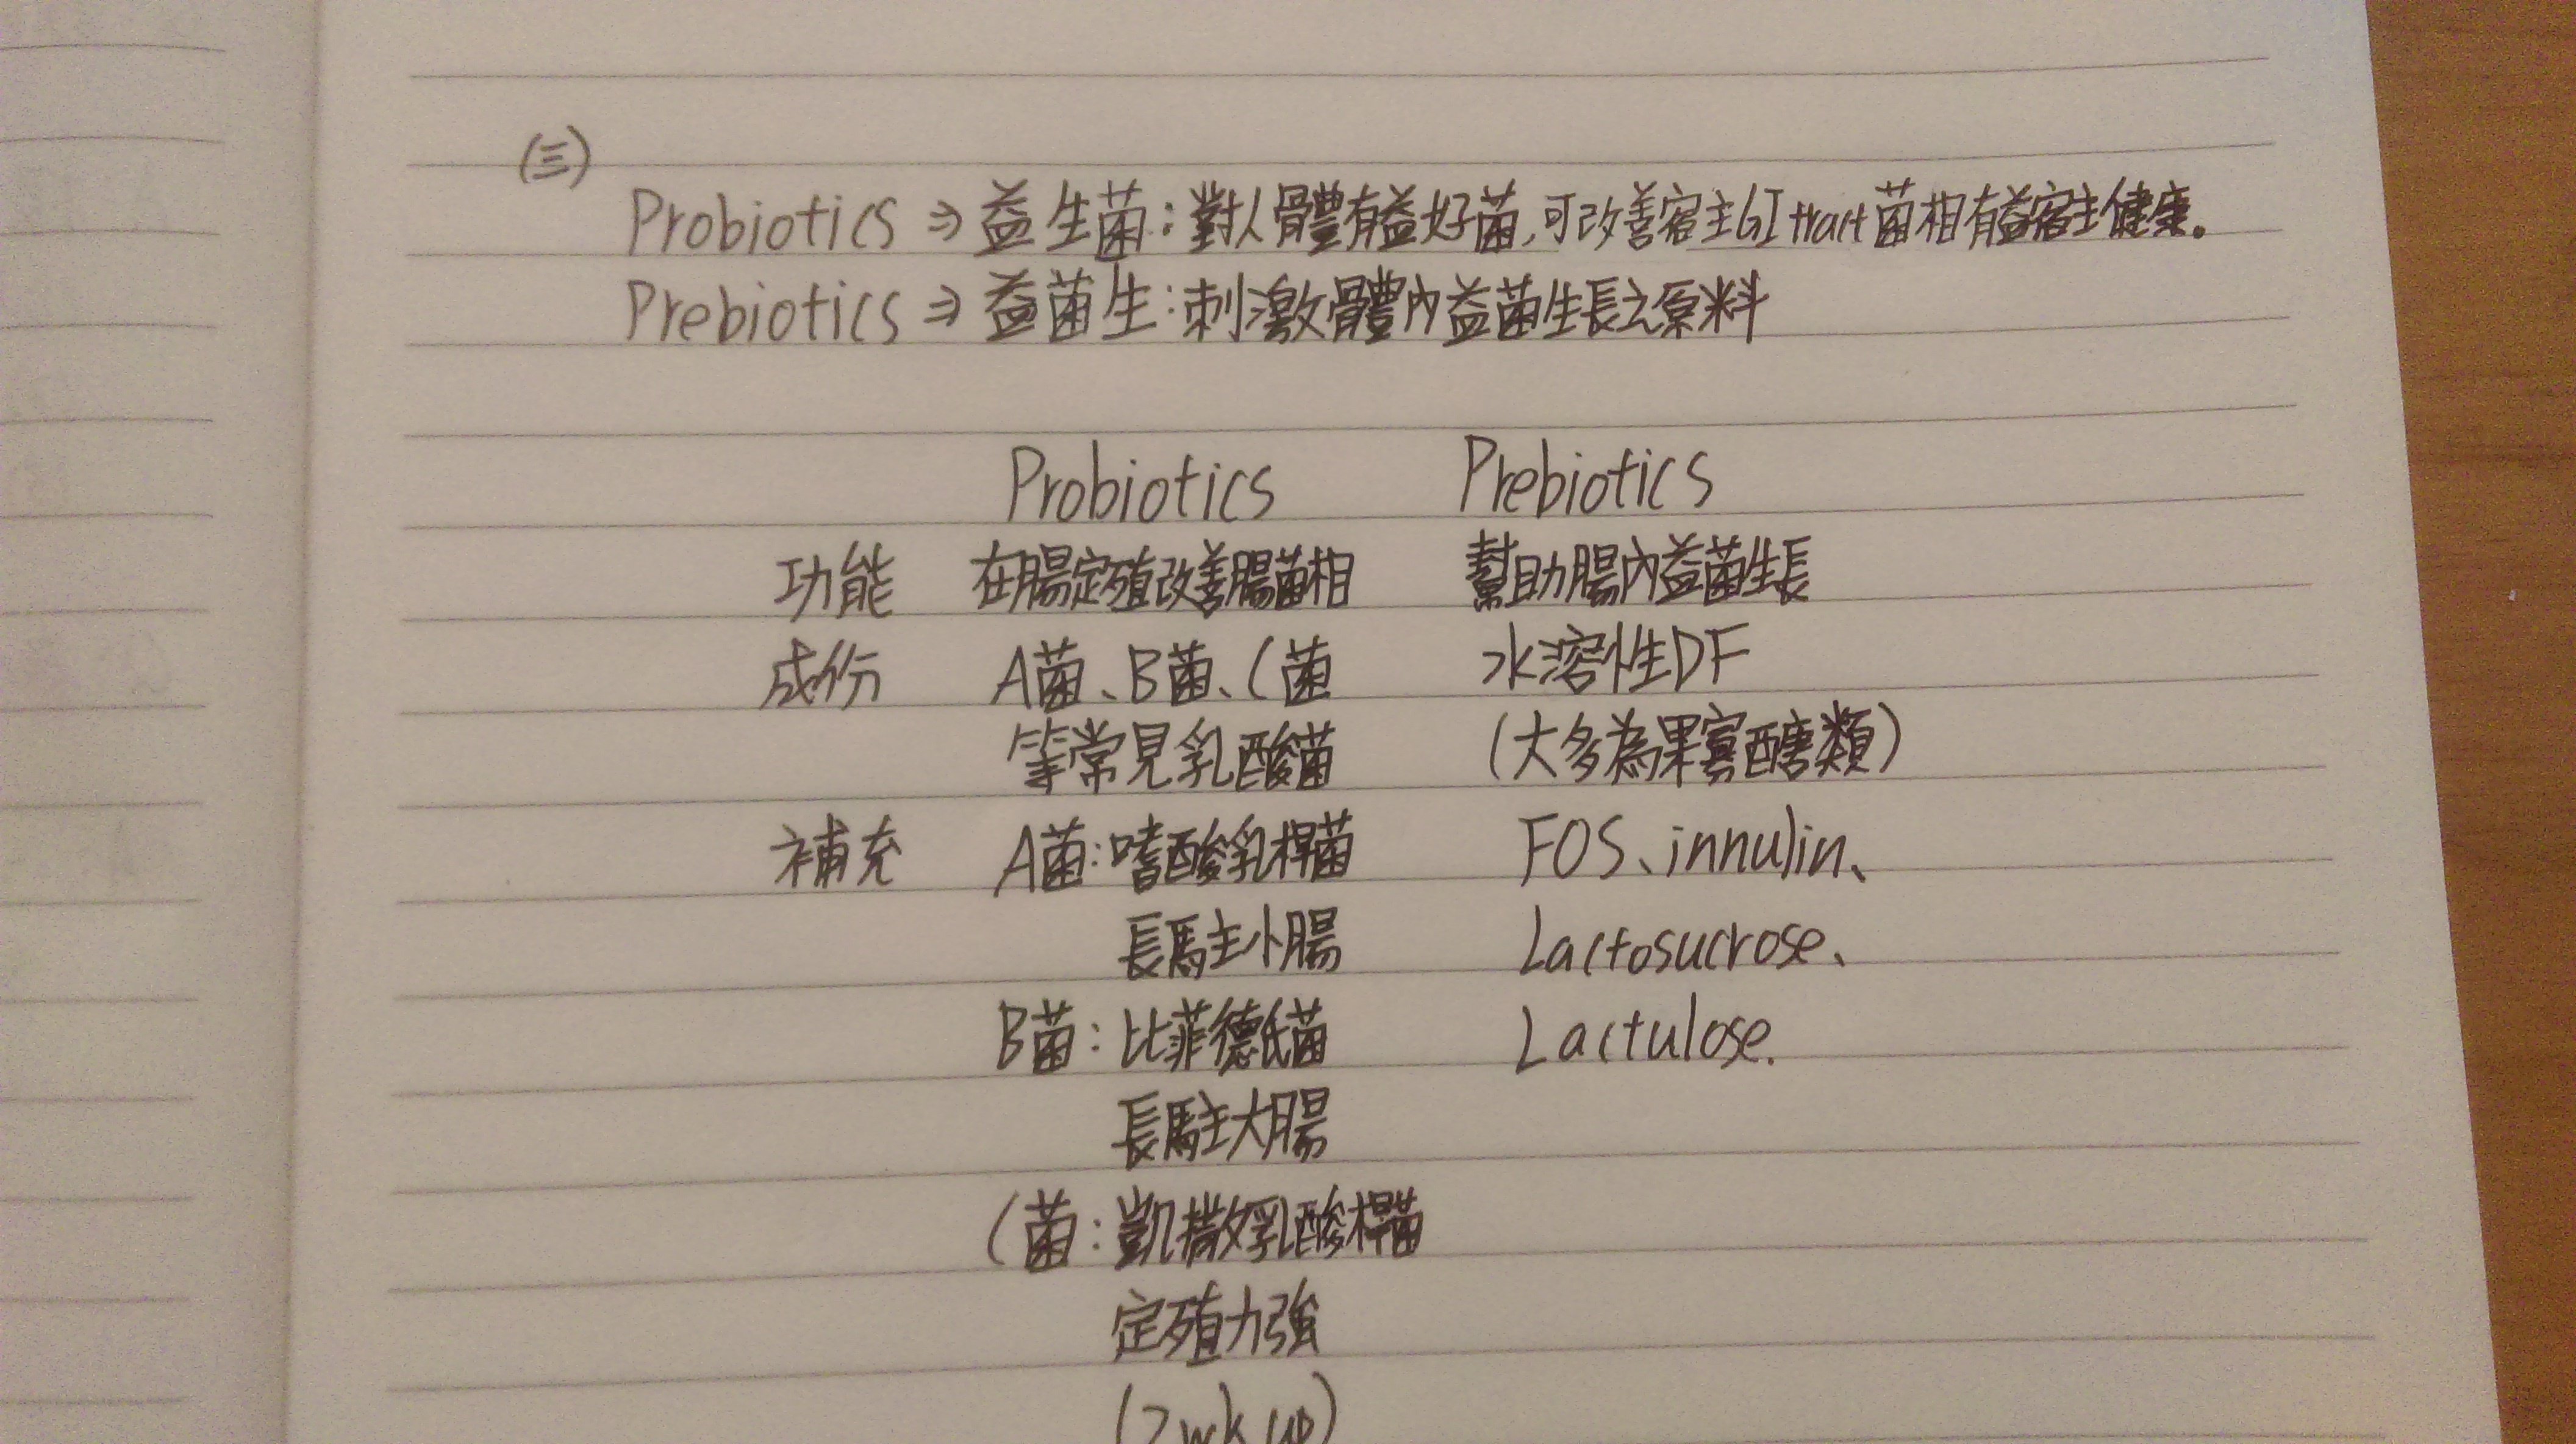 (三)
Probiotics ⇒ 益生菌：對人體有益好菌,可改善宿主GI tract菌相有益宿主健康。
Prebiotics ⇒ 益菌生：刺激體內益菌生長之原料
Probiotics Prebiotics
功能 在腸定殖改善腸菌相 幫助腸內益菌生長
成份 A菌、B菌、C菌 水溶性DF
等常見乳酸菌 (大多為果寡醣類)
補充 A菌：嗜酸乳桿菌 FOS、innulin、
長駐小腸 Lactosucrose、
B菌：比菲德氏菌 Lactulose.
長駐大腸
C菌：凱撒乳酸桿菌
定殖力強
(2wk up)